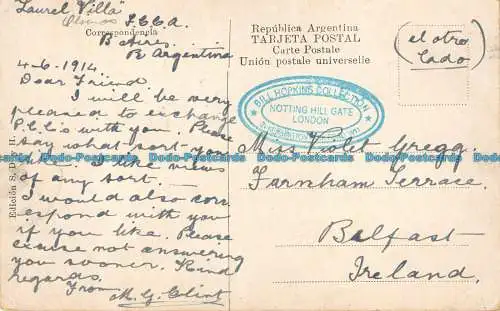 "Laurel Villa"
Olivos F.C.C.A.
Correspondencia
B Aires.
R Argentina
4-6-1914
Dear Friend.
I will be very
pleased to exchange
P.C.C's with you. Please
say what sort you
like. I like views
of any sort.
I would also corr
espond with you
if you like. Please
excuse not answering
you sooner. Kind
regards.
From
M. G. Clint
República Argentina
TARJETA POSTAL
Carte Postale
Unión postale universelle
(el otro
lado)
BILL HOPKINS COLLECTION
NOTTING HILL GATE
LONDON
Miss Violet Gregg
Farnham Terrace.
Belfast
Ireland.